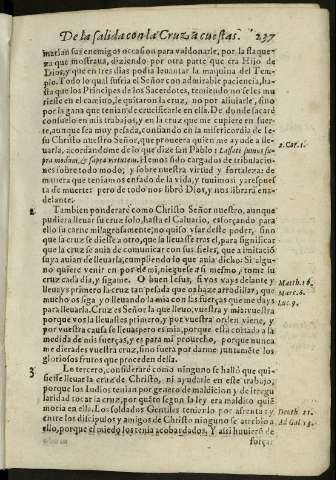 De la salida con la Cruz à cuestas. 237
marian sus enemigos occasion para valdonarle, por la flaque
za que mostraua, diziendo por otra parte que era Hijo de
Dios, y que en tres dias podia leuantar la maquina del Tem-
plo. Todo lo qual sufria el Señor con admirable paciencia, ha-
sta que los Principes de los Sacerdotes, temiendo no se les mu
riesse en el camino, le quitaron la cruz, no por aliuiarle, sino
por la gana que tenian de crucificarle en ella. De donde sacarè
consuelo en mis trabajos, y en la cruz que me cupiere en suer-
te, aunque sea muy pesada, confiando en la misericordia de Ie-
su Christo nuestro Señor, que proueera quien me ayude a lle-
uarla, acordandome de lo que dize san Pablo: Lassati sumus su-
pra modum, & supra virtutem. Hemos sido cargados de tribulacio-
nes sobre todo modo; y sobre nuestra virtud y fortaleza: de
manera que teniamos enfado de la vida, y tuuimos ya respues
ta de muerte: pero de todo nos librò Dios, y nos librarà ena-
delante.
2. Cor. 1.
2. Tambien ponderarè como Christo Señor nuestro, aunque
pudiera lleuar su cruz solo, hasta el Caluario, esforçando para
ello su carne milagrosamente; no quiso vsar deste poder, sino
que la cruz se diesse a otro, que la lleuasse tras el, para significar
que la cruz se auia de comunicar con sus fieles, que a imitaciõ
suya auian de lleuarla; cumpliendo lo que auia dicho: Si algu-
no quiere venir en pos de mi, nieguese a si mesmo, tome su
cruz cada dia, y sigame. O buen Iesus, si vos vays delante y
lleuays primero la cruz tan pesada que os haze arrodillar, que
mucho os siga yo lleuando la mia con las fuerças que me days
para lleuarla. Cruz es Señor la que lleuo, vuestra y mia: vuestra
porque vos la lleuastes primero, y por vuestra orden viene, y
por vuestra causa se lleua: pero es mia, porque està cortada a la
medida de mis fuerças, y es para mi prouecho, porque nunca
me dierades vuestra cruz, sino fuera por darme juntamẽte los
gloriosos frutos que proceden della.
Matth. 16.
Marc. 8.
Luc. 9.
3 Lo tercero, considerarè como ninguno se hallò que qui-
siesse lleuar la cruz de Christo, ni ayudarle en este trabajo,
porque los Iudios tenian por genero de maldicion y de irregu
laridad tocar la cruz, porque segun la ley era maldito quiẽ
moria en ella. Los soldados Gentiles tenianlo por afrenta: y
entre los discipulos y amigos de Christo ninguno se atreuio a
ello, porque el miedo los tenia acobardados. Y assi huuieron de
Deuth. 21.
Ad Gal. 13.
forçar